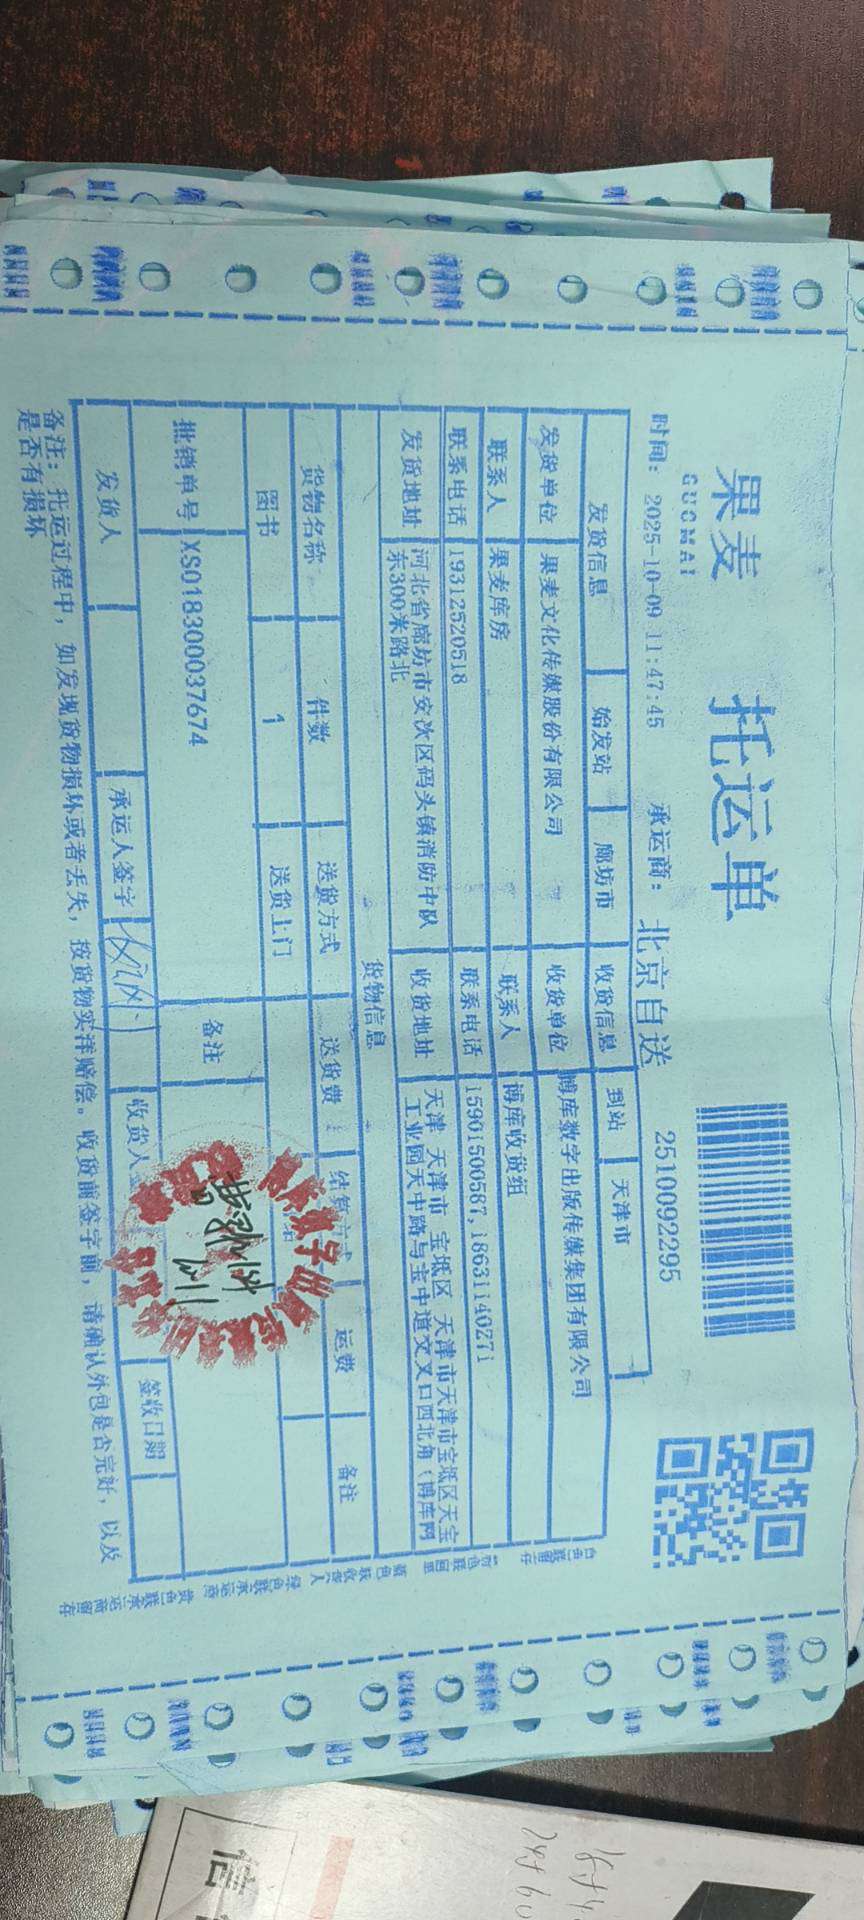 果麦
GUOMAI
托运单
时间: 2025-10-09 11:47:45
承运商: 北京自送
2510092295
发货信息 始发站 廊坊市 收货信息 到站 天津市
发货单位 果麦文化传媒股份有限公司 收货单位 博库数字出版传媒集团有限公司
联系人 果麦库房 联系人 博库收货组
联系电话 19312520518 联系电话 15901500587,18631140271
发货地址 河北省廊坊市安次区码头镇消防中队
东300米路北
收货地址 天津 天津市 宝坻区 天津市天津市宝坻区天宝
工业园天中路与宝中道交叉口西北角(博库网
货物信息
货物名称 件数 送货方式 送货费 结算方式 运费 备注
图书 1 送货上门
批销单号 XS018300037674 备注
发货人 承运人签字 收货人 签收日期
备注: 托运过程中, 如发现货物损坏或者丢失, 按货物实洋赔偿。收货前签字前, 请确认外包是否完好, 以及
是否有损坏